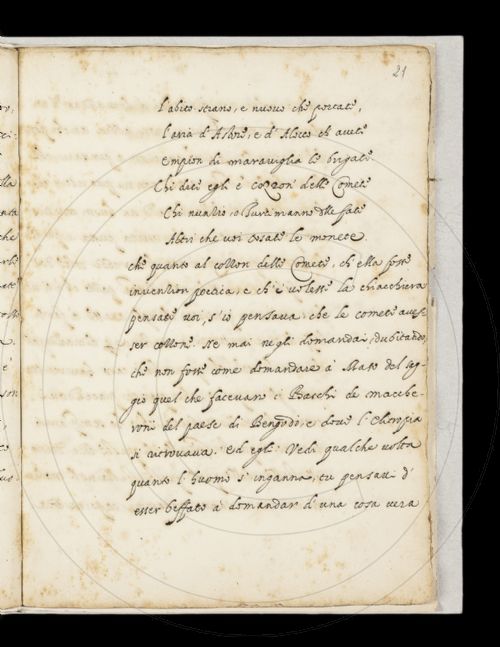 21
l'abito strano, e nuovo che portate,
l'aria d'Astore, e d'Alocco ch' avete
empion di maraviglia le brigate.
Chi dice egli è cozzon delle Comete
Chi nunzio, o Turcimanno delle fate
Altri che voi tosate le monete.
che quanto al cozzon delle Comete, ch' ella fosse
invention poetica, e ch' e' volesse la chiacchiera
pensate voi, s'io pensava che le comete aves-
ser cozzone. Ne mai negli domandai, dubitando,
che non fosse come domandare à Maso del sag-
gio quel che facevano i Baschi de macche-
roni del paese di Bengodi, e dove l'Elitropia
si ritrovava. Ed egli: Vedi qualche volta
quanto l'huomo s'inganna, tu pensavi d'
esser beffato à domandar d'una cosa vera